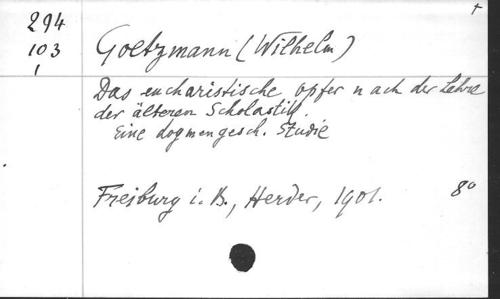 294
103
1
Goetzmann (Wilhelm)
Das eucharistische Opfer nach der Lehre
der älteren Scholastik.
Eine dogmengesch. Studie
Freiburg i. B., Herder, 1901. 8°